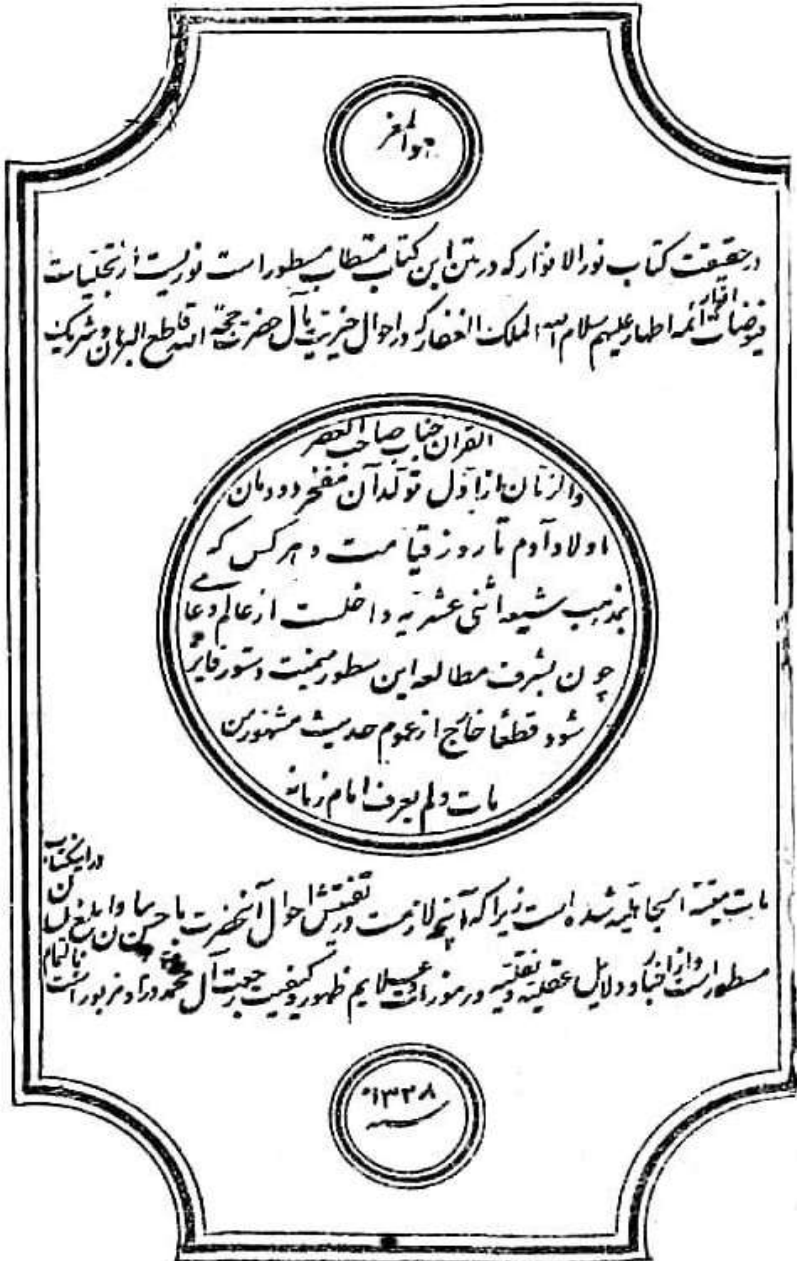 هوالعزیز
در حقیقت کتاب نور الانوار که در متن این کتاب مستطاب مسطور است نوریست از تجلیات
انوار
فیوضات ائمه اطهار علیهم سلام الله الملک الغفار که در احوال خیریت مآل حضرت حجة الله قاطع البرهان و شریک
القران جناب صاحب العصر
والزمان از اول تولد آن مفخر دودمان
اولاد آدم تا روز قیامت و هر کس که
بمذهب شیعه اثنی عشریه داخلست از عالم و عامی
چون بشرف مطالعه این سطور میمنت دستور فایز
شود قطعا خارج از عموم حدیث مشهور من
مات ولم یعرف امام زمانه
مات میتة الجاهلیه شده است زیرا که آنچه لازمست در تفتیش احوال آنحضرت با حسن بیان و ابلغ لسان در این کتاب
مسطور است و از اخبار و دلایل عقلیه و نقلیه و رموزات و علایم ظهور و کیفیت رجعت آل محمد در او مزبور است
۱۳۲۸